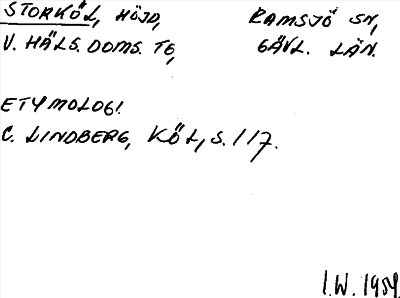 STORKÖL, HÖJD, RAMSJÖ SN,
V. HÄLS. DOMS. TG, GÄVL. LÄN.
ETYMOLOGI.
C. LINDBERG, KÖL, S. 117.
I.W. 1959.